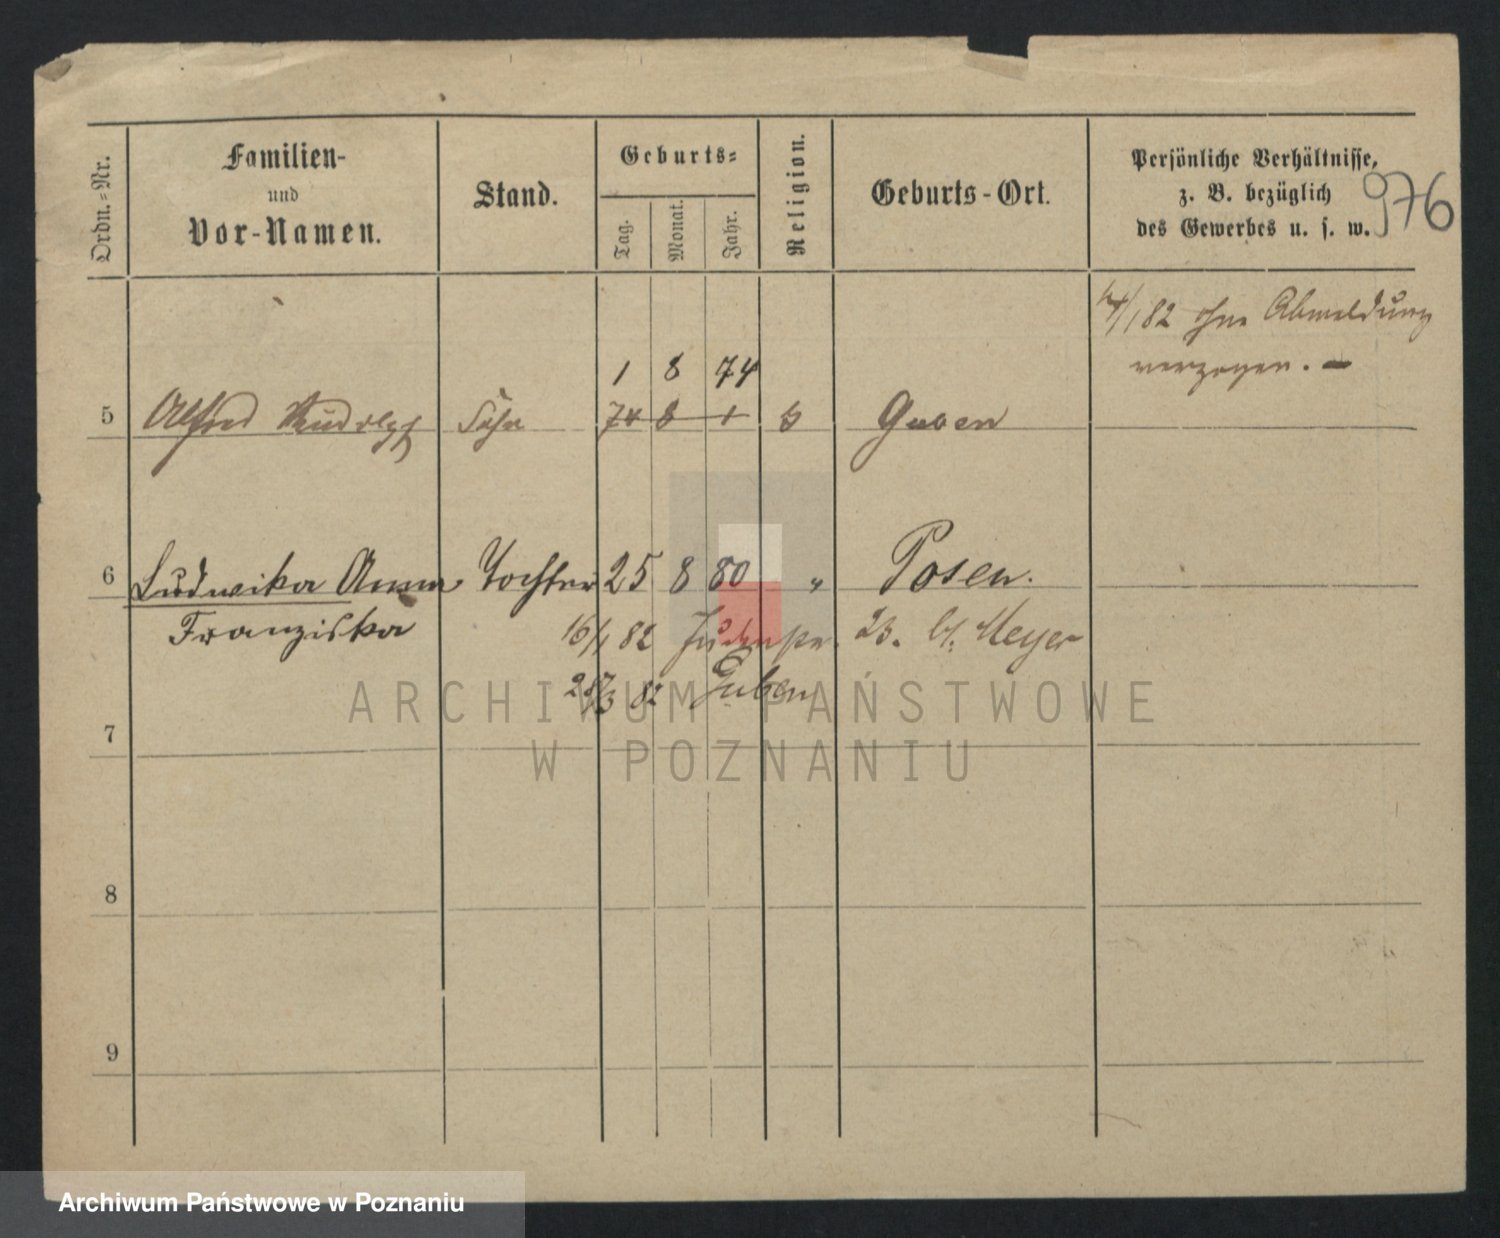 Ordn.-Nr.
Familien-
und
Vor-Namen.
Stand.
Geburts-
Tag.
Monat.
Jahr.
Religion.
Geburts-Ort.
Persönliche Verhältnisse,
z. B. bezüglich
des Gewerbes u. s. w.
976
/1 82 ohne Abmeldung
verzogen. —
1 8 74
5 Alfred Rudolph Sohn 74 8 1 Guben
6 Ludwika Anna Tochter 25 8 80 " Posen.
Franziska
16/1 82 Judenstr. 23. b/. Meyer
28/3 82 Guben
7
8
9
ARCHIWUM PAŃSTWOWE
W POZNANIU
Archiwum Państwowe w Poznaniu